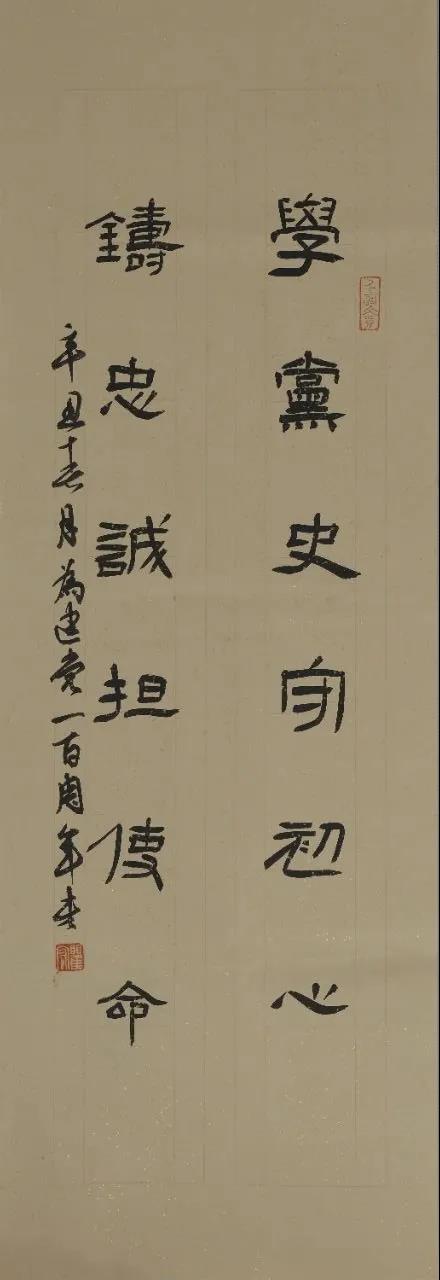 學黨史守初心
鑄忠誠担使命
辛丑春月為建党一百周年書